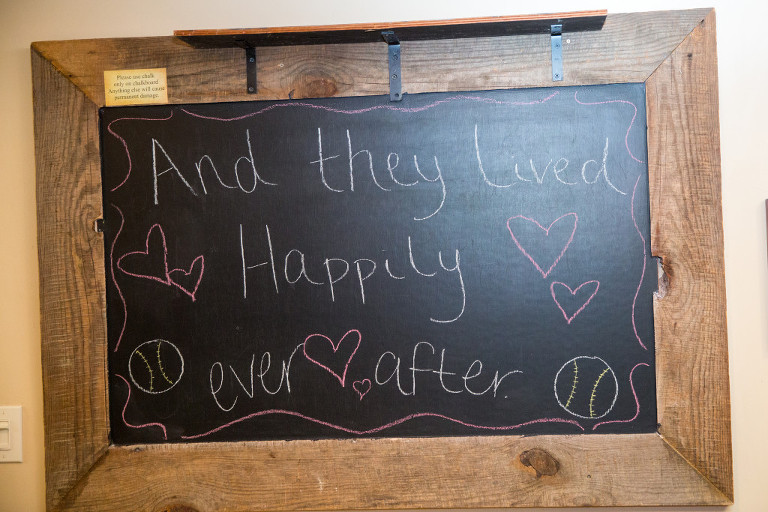 Please use chalk
only on chalkboard
Anything else will cause
permanent damage.
And they lived
Happily
ever after.